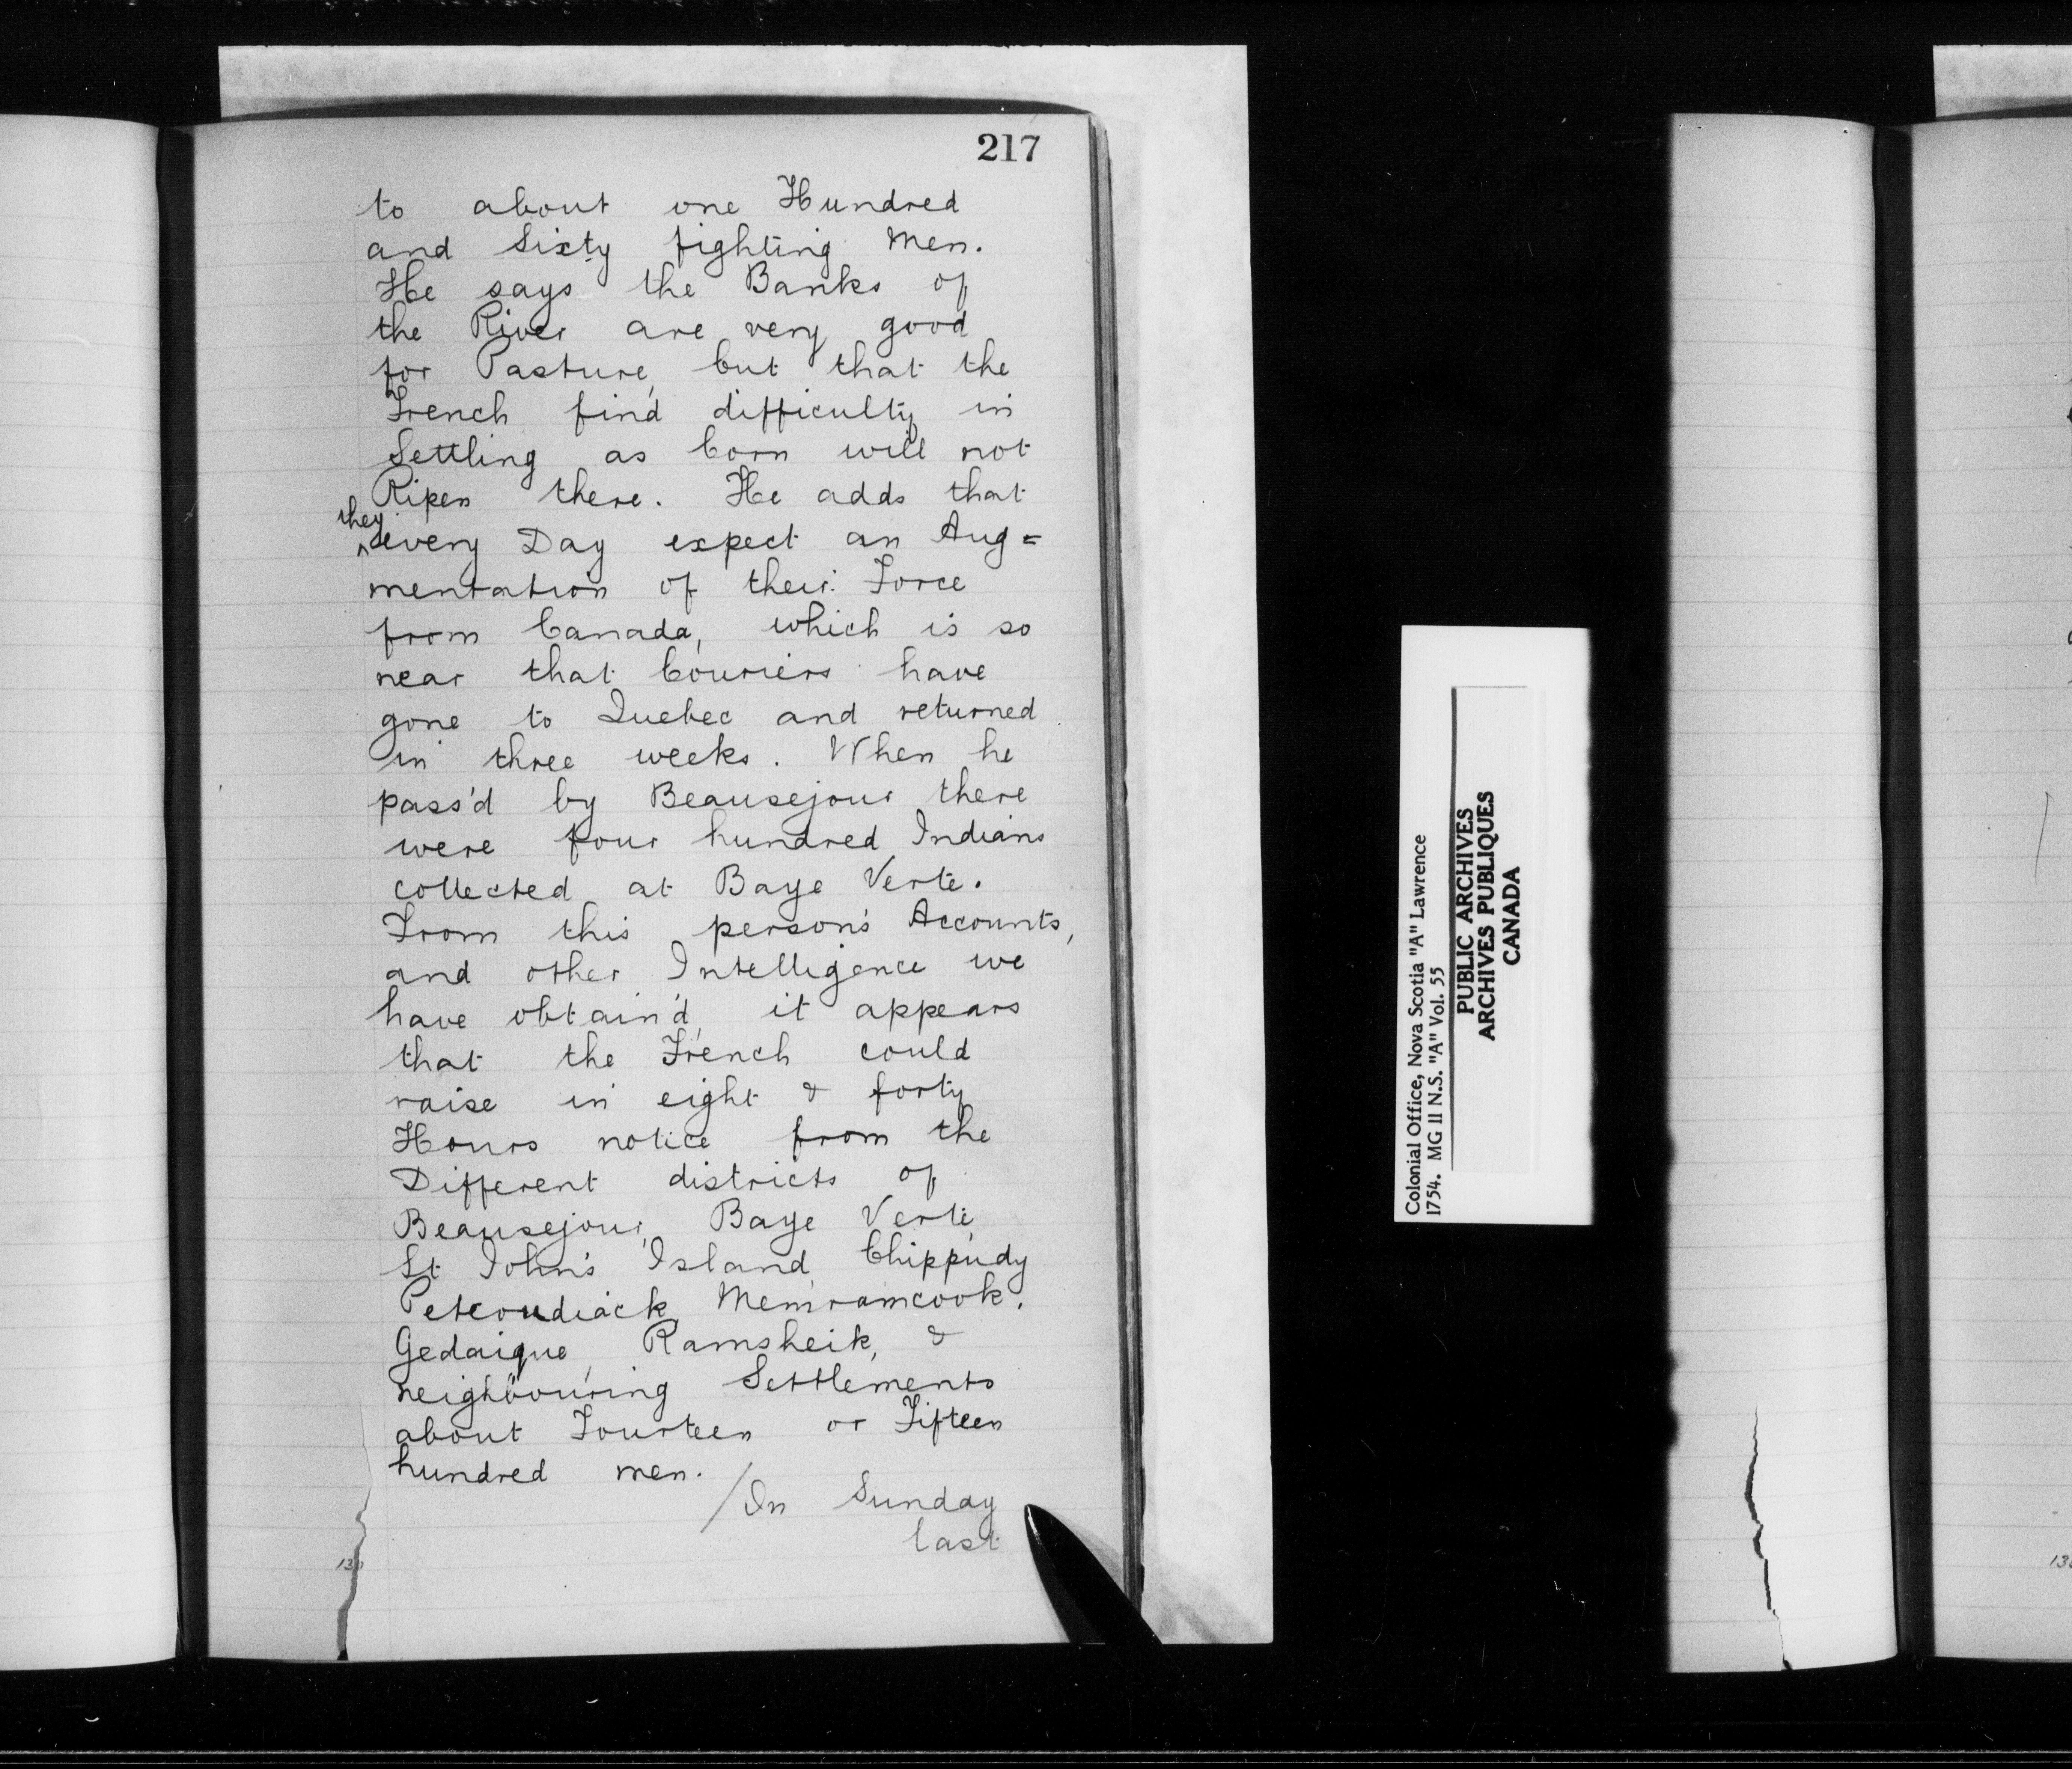 217
to about one Hundred
and Sixty fighting Men.
He says the Banks of
the River are very good
for Pasture, but that the
French find difficulty in
Settling as Corn will not
Ripen there. He adds that
they
^every Day expect an Aug=
mentation of their Force
from Canada, which is so
near that Couriers have
gone to Quebec and returned
in three weeks. When he
pass'd by Beausejour there
were four hundred Indians
collected at Baye Verte.
From this person's Accounts,
and other Intelligence we
have obtain'd, it appears
that the French could
raise in eight & forty
Hours notice from the
Different districts of
Beausejour, Baye Verte,
St John's Island, Chippudy
Petcoudiack, Memramcook,
Gedaique, Ramsheik, &
neighbouring Settlements
about Fourteen or Fifteen
hundred men.
/On Sunday
last
Colonial Office, Nova Scotia "A" Lawrence
1754. MG 11 N.S. "A" Vol. 55
PUBLIC ARCHIVES
ARCHIVES PUBLIQUES
CANADA